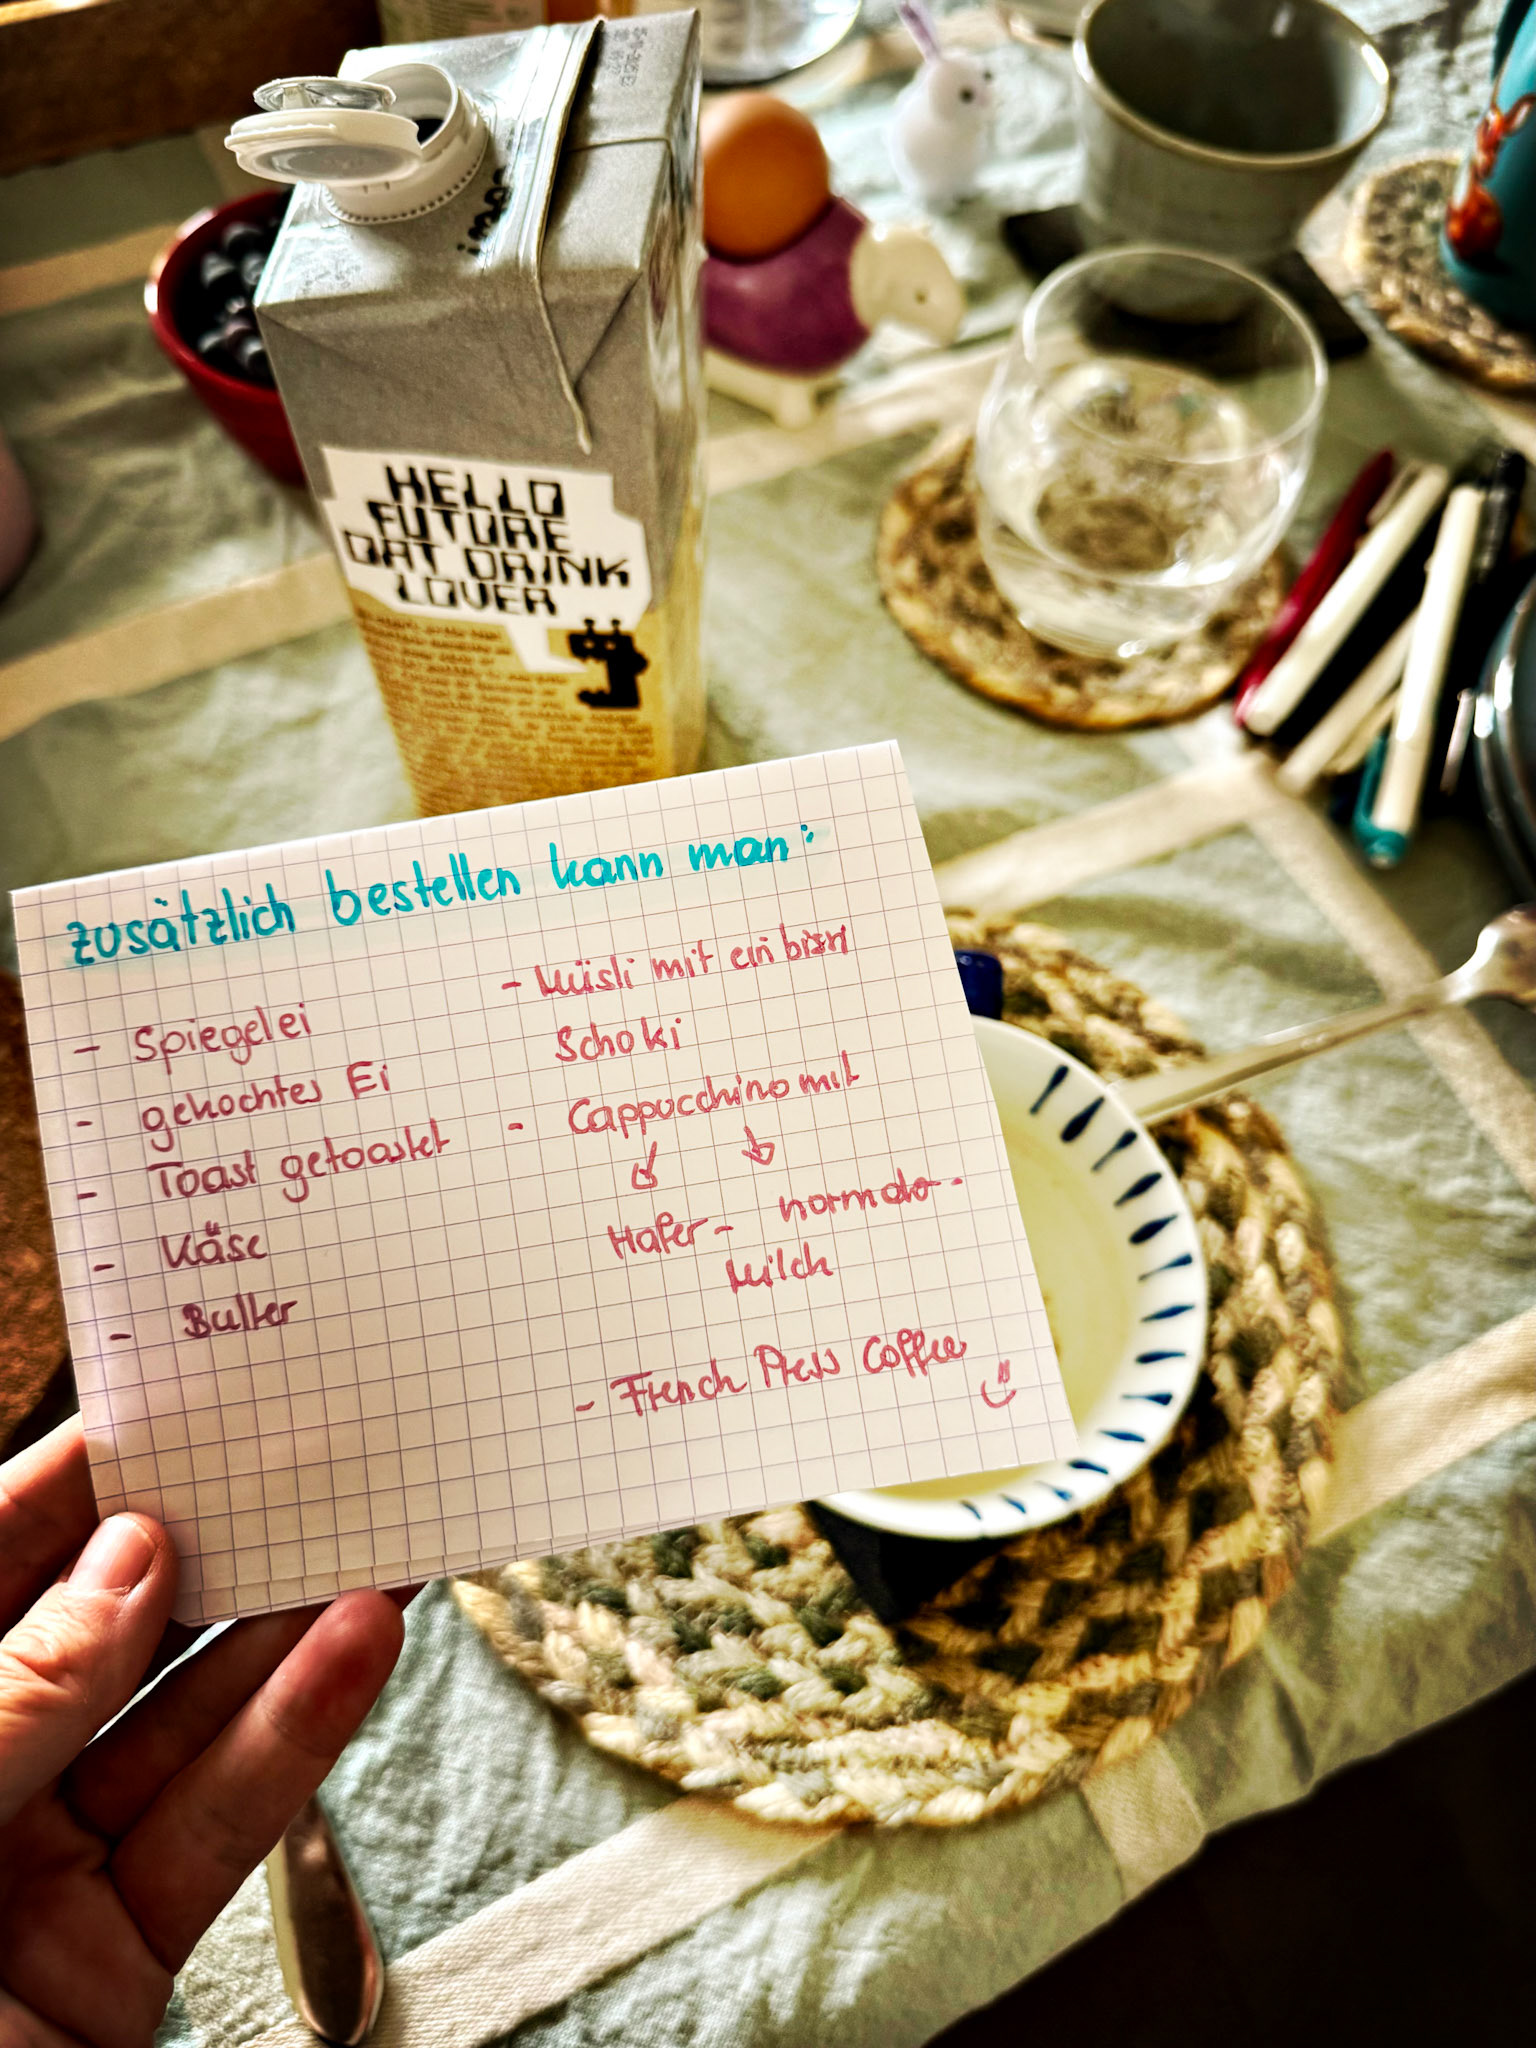 HELLO
FUTURE
OAT DRINK
LOVER
zusätzlich bestellen kann man:
- Spiegelei
- gekochtes Ei
- Toast getoastet
- Käse
- Butter
- Müsli mit ein bissl
Schoki
- Cappucchino mit
Hafer- normaler-
Milch
- French Press Coffee